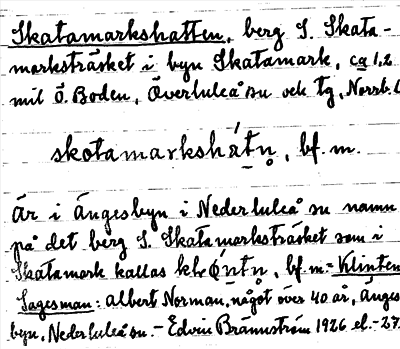 Skatamarkshatten, berg S. Skata-
marksträsket i byn Skatamark, ca 1,2
mil Ö. Boden, Överluleå sn och tg, Norrb. l
skatamarkshátn̥, bf. m.
Är i Ängesbyn i Nederluleå sn namn
på det berg S. Skatamarksträsket som i
Skatamark kallas bf. m. = Klinten
Sagesman: Albert Norman, något över 40 år, Änges
byn, Nederluleå sn. - Edvin Brännström 1926 el. - 27.